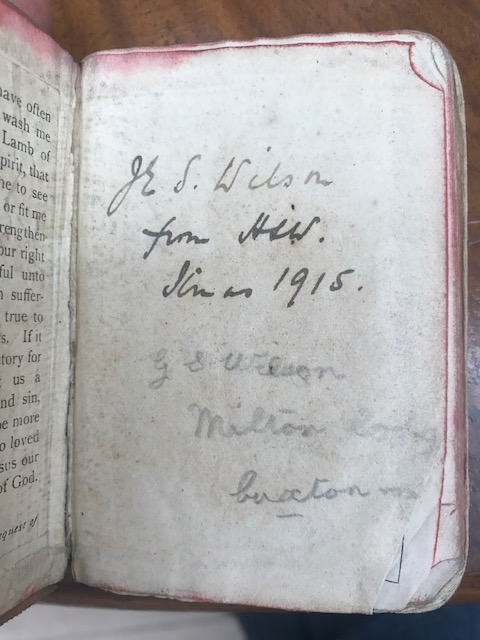 have often
wash me
Lamb of
pirit, that
me to see
or fit me
rengthen
our right
ful unto
suffer-
true to
s. If it
tory for
us a
nd sin,
be more
o loved
sus our
of God.
quest of
J E S. Wilson
from HSW.
Xmas 1915.
G S Wilson
Milton
Buxton